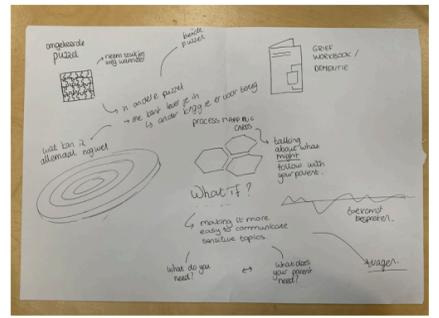 omgekeerde
puzzel
neem stukjes
weg wanneer
beide
puzzel
GRIEF
WORKBOOK /
DEMENTIE
'n andere puzzel
ene kant lever je in
ander krijg je er voor terug
wat kan ik
allemaal nog wel
PROCESS MAPPING
CARDS
talking
about what
might
follow with
your parent.
What if?
making it more
easy to communicate
sensitive topics.
toekomst
bespreken.
what do you
need?
what does
your parent
need?
vragen.